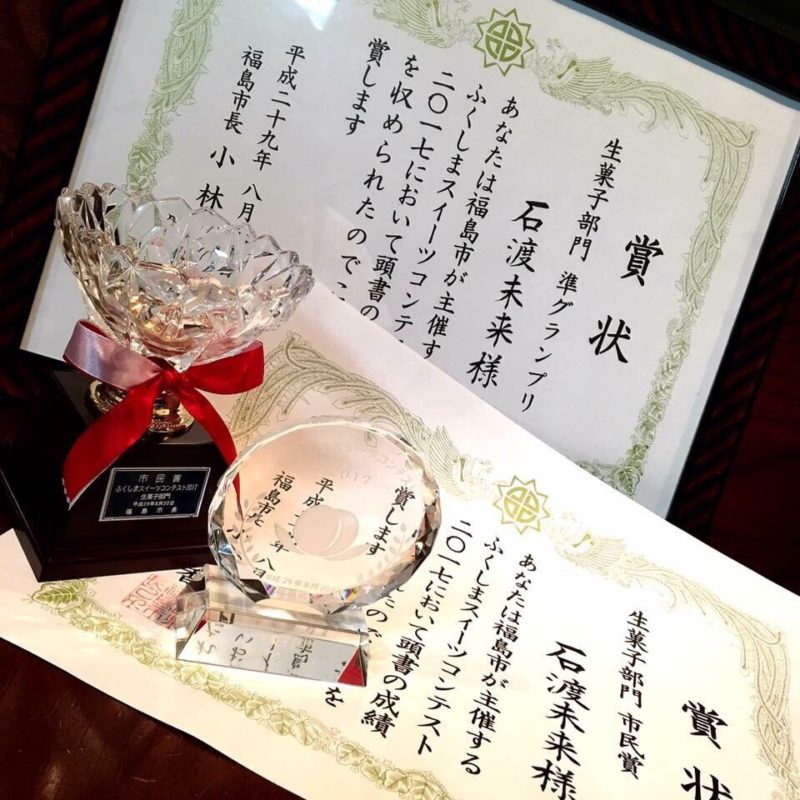 賞状
生菓子部門 準グランプリ
石渡未来様
あなたは福島市が主催す
ふくしまスイーツコンテ
二〇一七において頭書の
を収められたのでこ
賞します
平成二十九年 八月
福島市長 小林
賞状
生菓子部門 市民賞
石渡未来様
あなたは福島市が主催する
ふくしまスイーツコンテスト
二〇一七において頭書の成績
を
れたので
賞します
平成二
年 八
福島市長
市民賞
ふくしまスイーツコンテスト2017
生菓子部門
平成29年8月20日
福島市長
スイーツコンテス
2017
平成29年8月